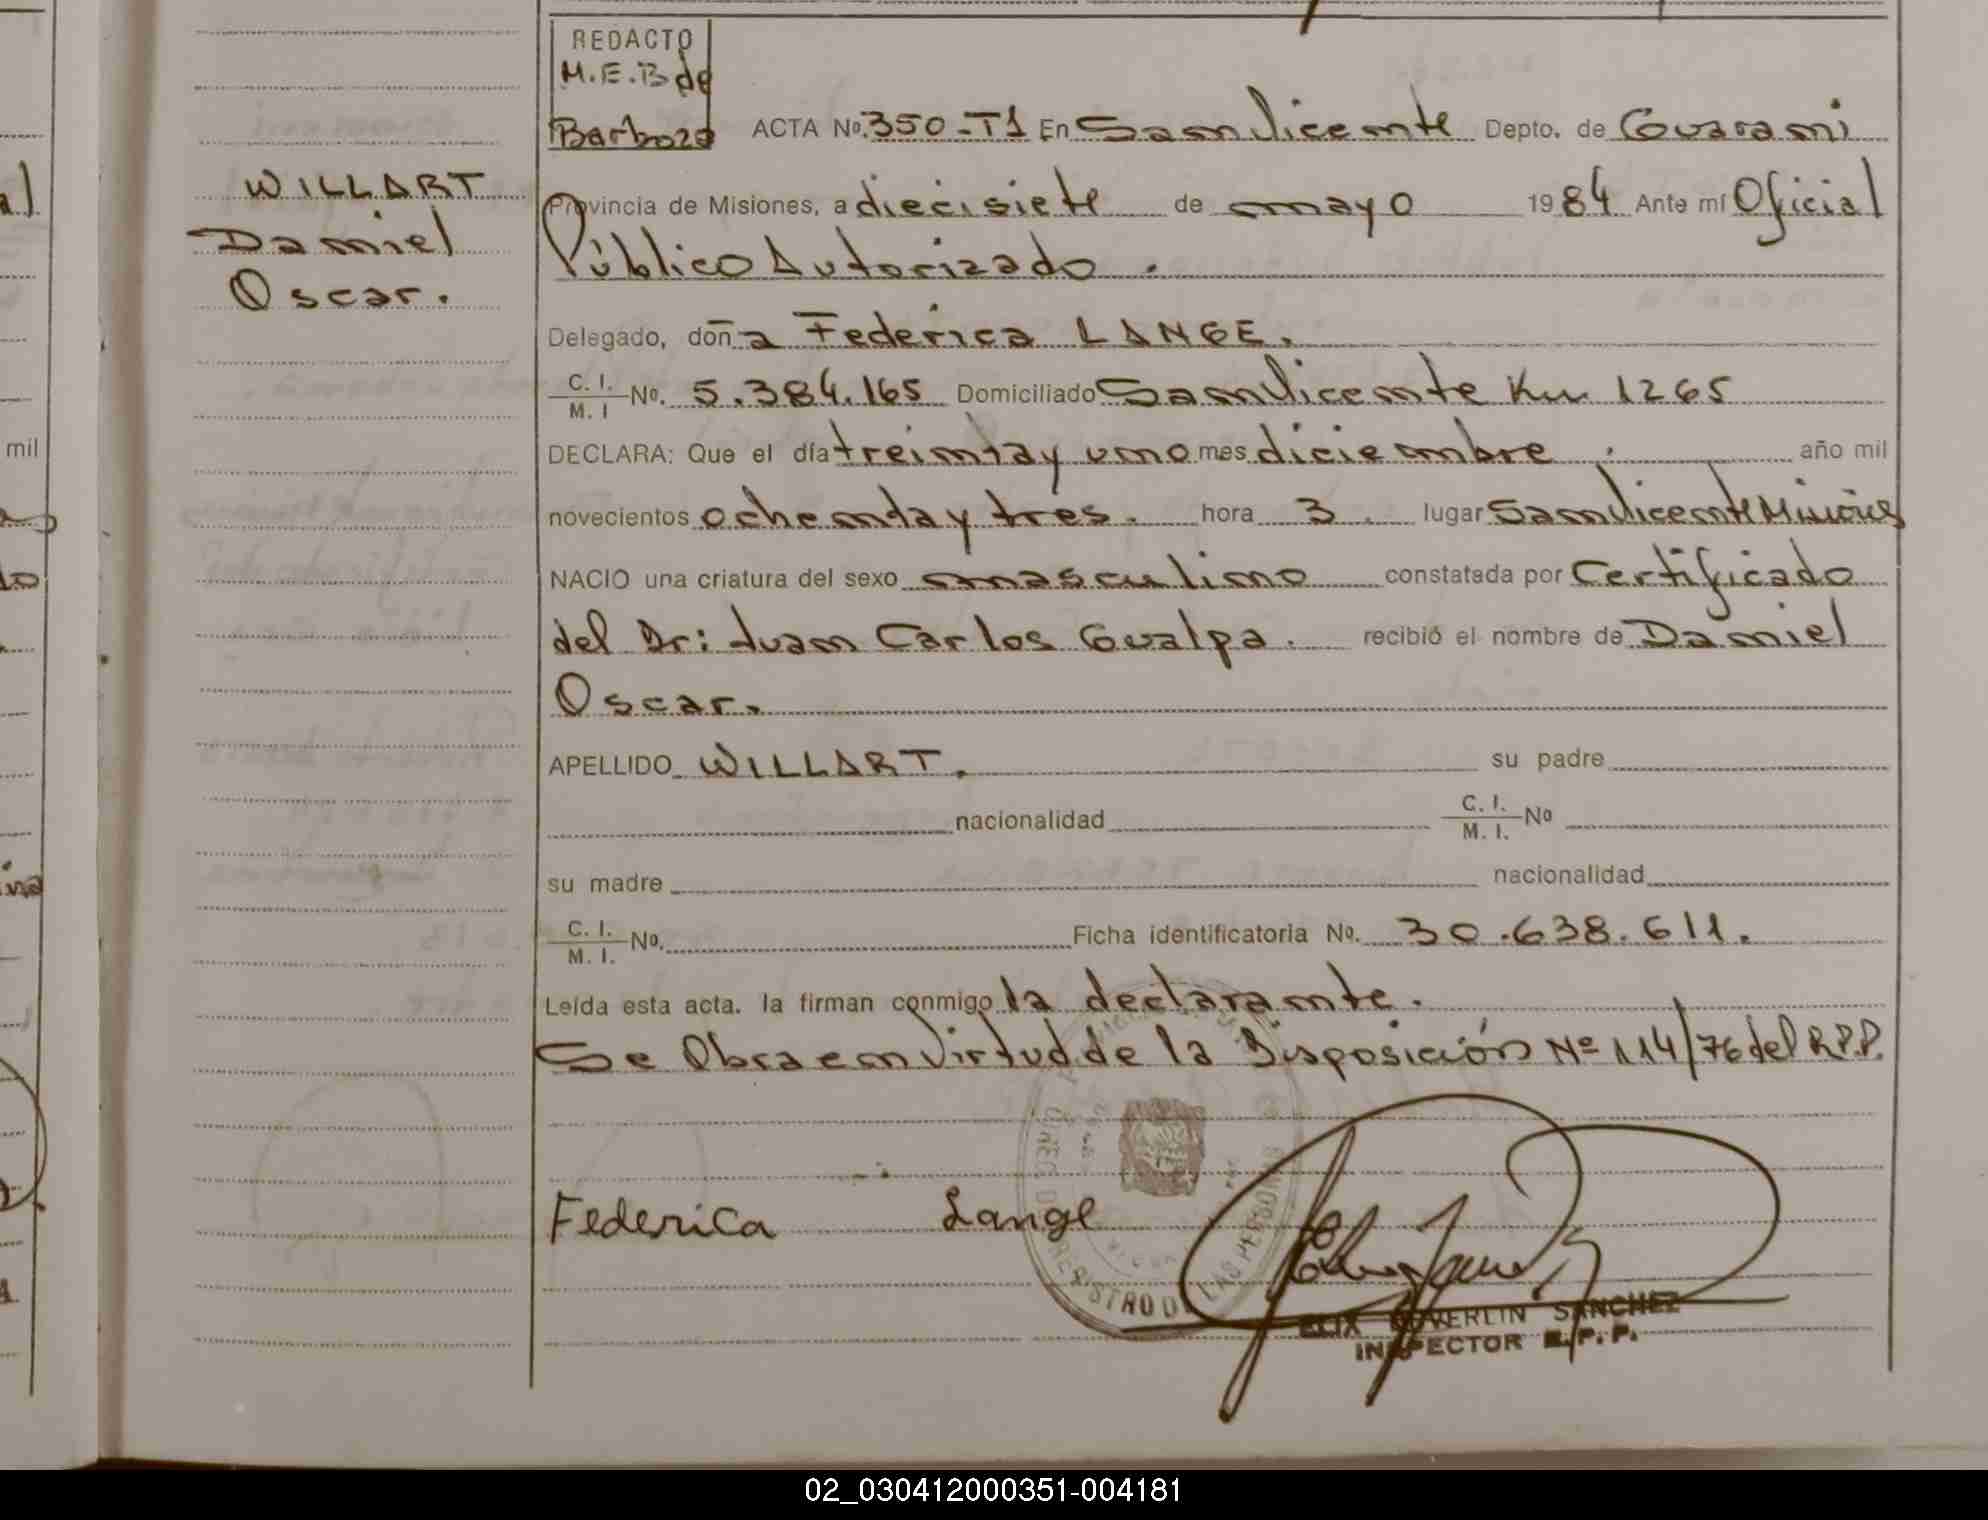 REDACTO
M.E.B de
Barboza
ACTA No. 350-T1 En San Vicente Depto. de Guarani
WILLART
Daniel
Oscar.
Provincia de Misiones, a diecisiete de mayo 1984 Ante mí Oficial
Público Autorizado.
Delegado, doña Federica LANGE.
C. I. / M. I No. 5.384.165 Domiciliado San Vicente Km 1265
DECLARA: Que el día treinta y uno mes diciembre. año mil
novecientos ochenta y tres. hora 3. lugar San Vicente Misiones
NACIO una criatura del sexo masculino constatada por Certificado
del Dr: Juan Carlos Gualpa. recibió el nombre de Daniel
Oscar.
APELLIDO WILLART. su padre
nacionalidad C. I. / M. I. No
su madre nacionalidad
C. I. / M. I. No. Ficha identificatoria No. 30.638.611.
Leída esta acta. la firman conmigo la declarante.
Se Obra en Virtud de la Disposición Nº 114/76 del R.P.P.
Federica Lange
REGISTRO DE LAS PERSONAS
SANCHEZ
INSPECTOR
mil
02_030412000351-004181